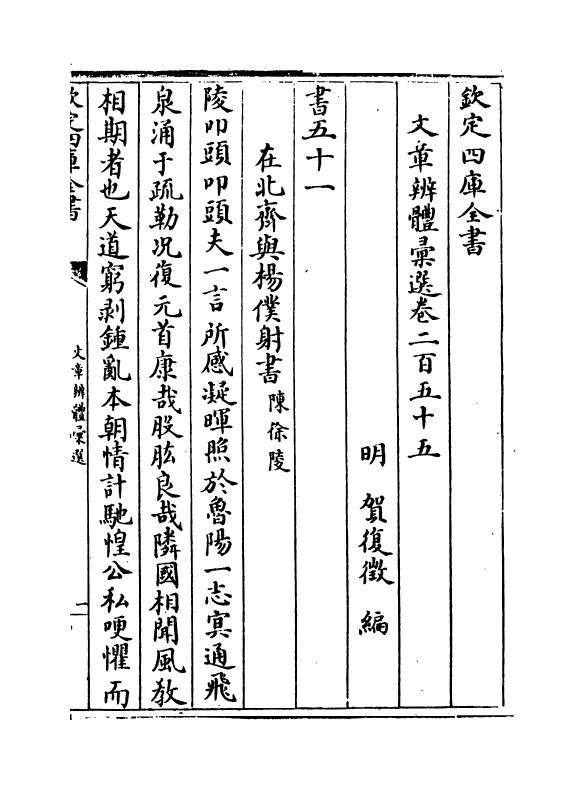 欽定四庫全書
文章辨體彙選卷二百五十五
明　賀復徵　編
書五十一
在北齊與楊僕射書陳徐陵
陵叩頭叩頭夫一言所感凝暉照於魯陽一志冥通飛
泉涌于疏勒况復元首康哉股肱良哉隣國相聞風敎
相期者也天道窮剥鍾亂本朝情計馳惶公私哽懼而
欽定四庫全書
文章辨體彙選